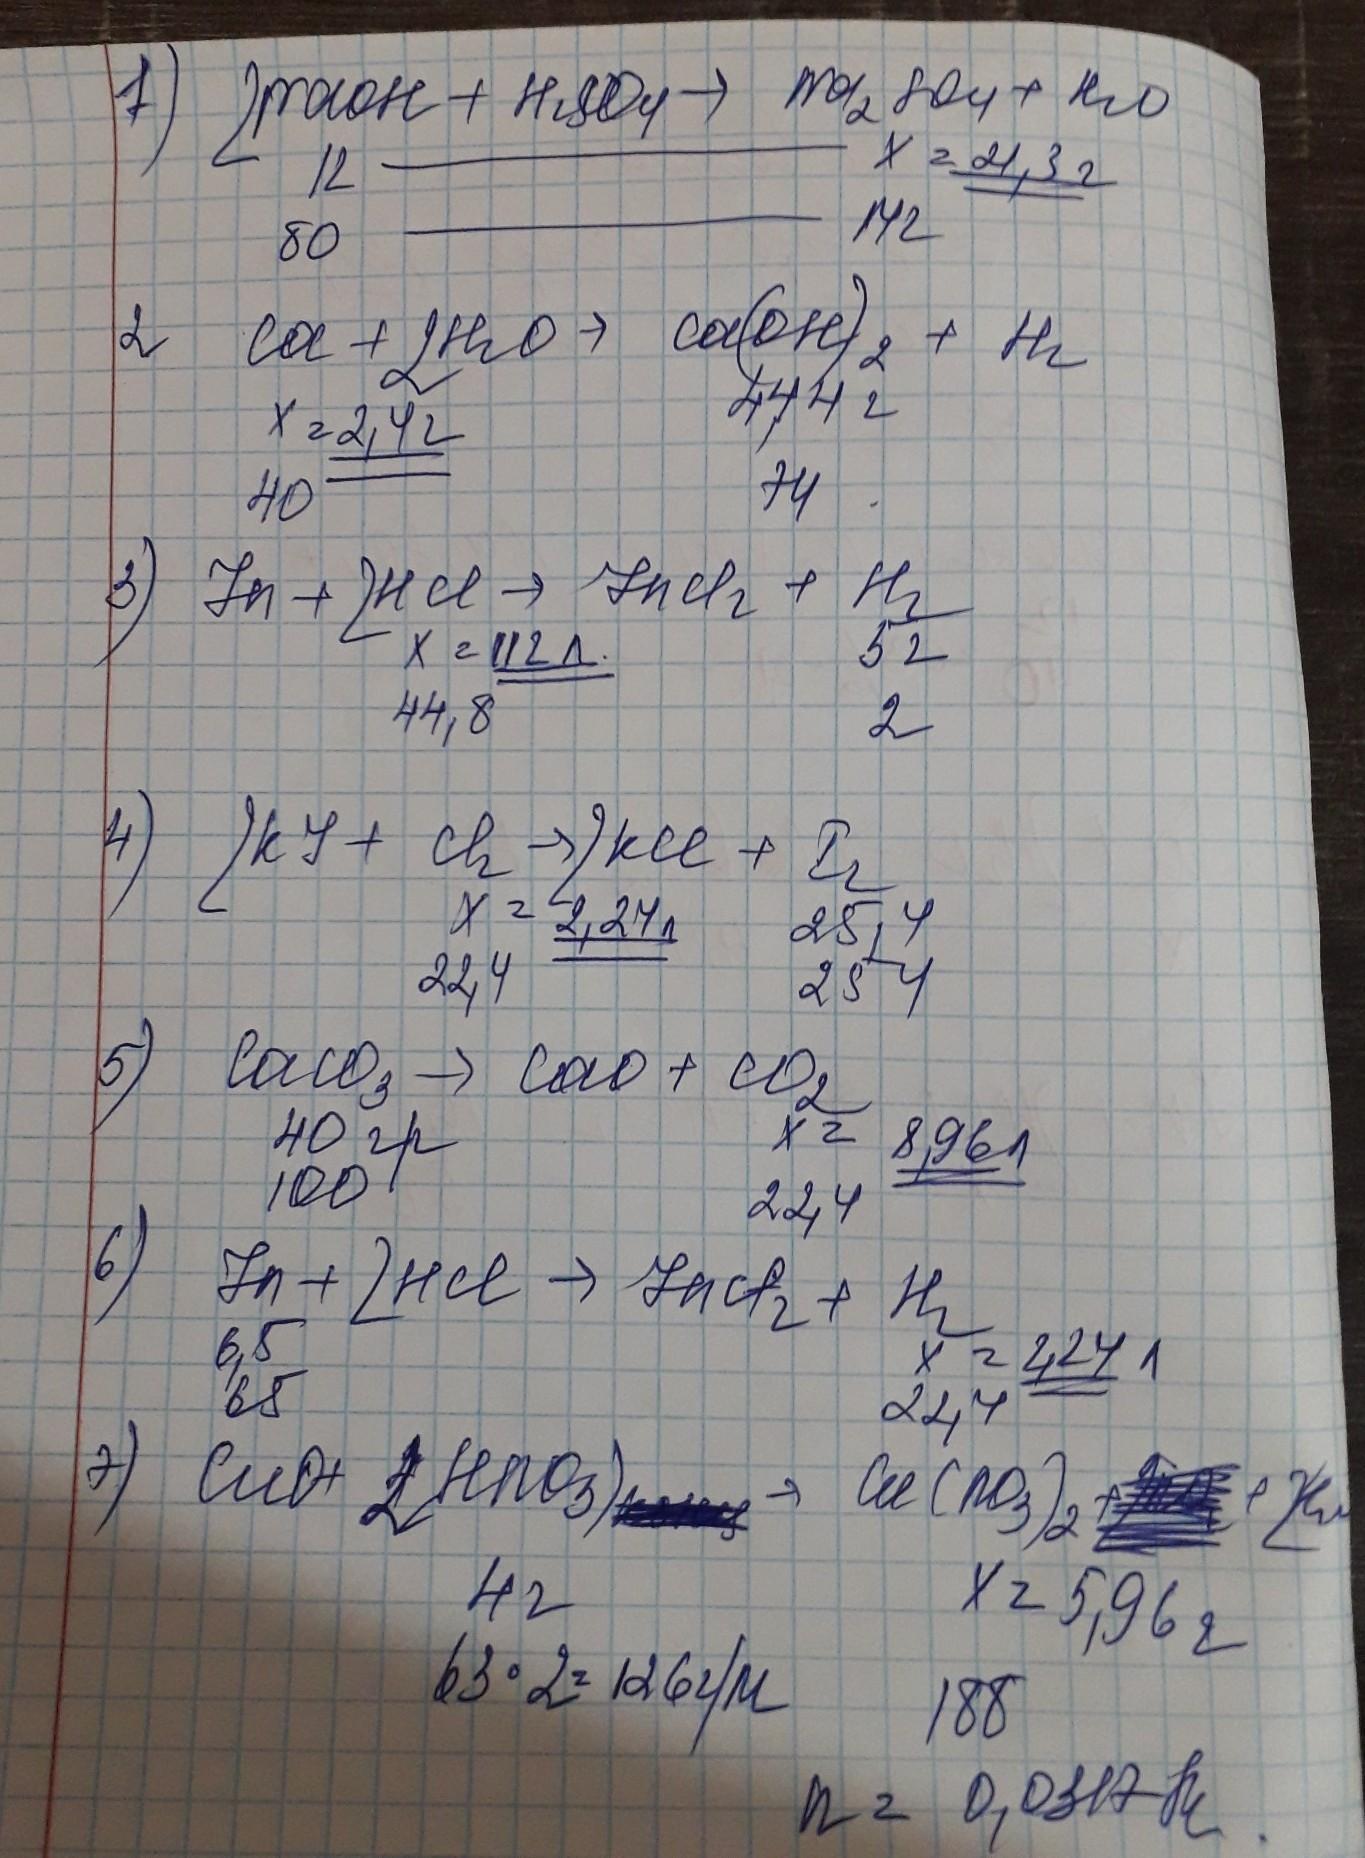 1) 2NaOH + H2SO4 → Na2SO4 + H2O
12 x = 21,3г
80 142
2 Ca + 2H2O → Ca(OH)2 + H2
x = 2,4г 4,44г
40 74
3) Zn + 2HCl → ZnCl2 + H2
x = 112 л. 5г
44,8 2
4) 2KJ + Cl2 → 2KCl + I2
x = 2,24л 25,4
22,4 254
5) CaCO3 → CaO + CO2
40 гр x = 8,96л
100 22,4
6) Zn + 2HCl → ZnCl2 + H2
6,5 x = 2,24 л
65 22,4
7) CuO + 2(HNO3) → Cu(NO3)2 +
4г x = 5,96г
63·2=126г/м 188
n = 0,0317